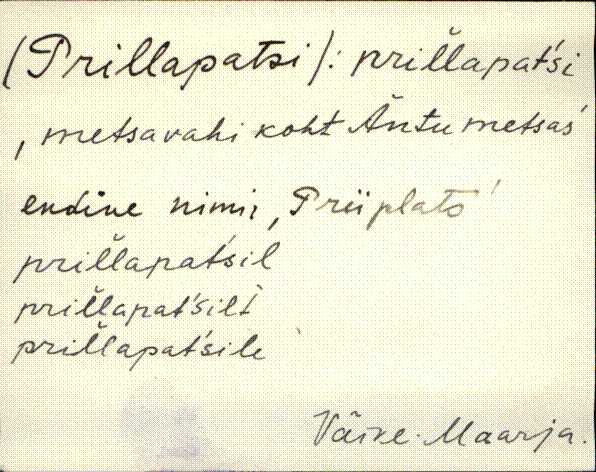 (Prillapatsi): prillapat'si
, metsavahi koht Äntu metsas'
endine nimi, 'Priiplats'
prillapat'sil
prillapat'silt
prillapat'sile
Väike-Maarja.